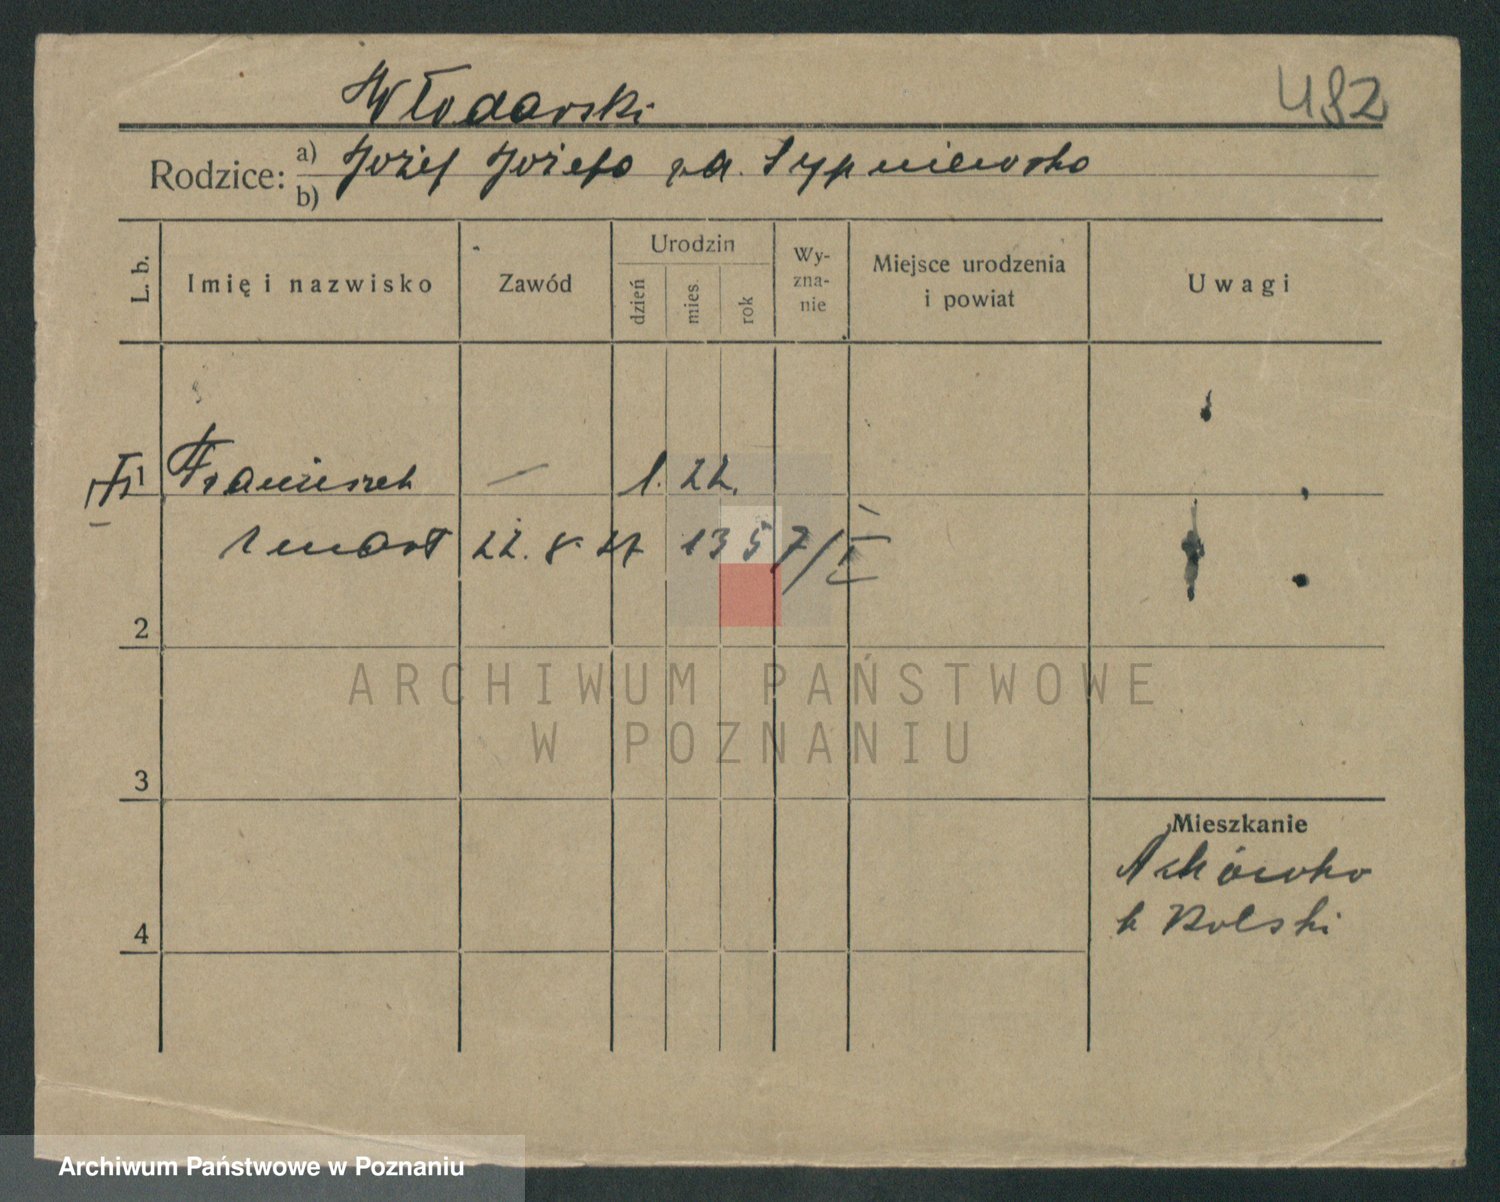 Włodarski 482
Rodzice: a) Józef Józefa zd. Sypniewska
b)
L. b. Imię i nazwisko Zawód Urodzin dzień mies. rok Wy-zna-nie Miejsce urodzenia i powiat Uwagi
1 Franciszek — 1. 22.
zmarł 22. 8. 27 1357/II
2
3
Mieszkanie
4
k Polski
ARCHIWUM PAŃSTWOWE
W POZNANIU
Archiwum Państwowe w Poznaniu